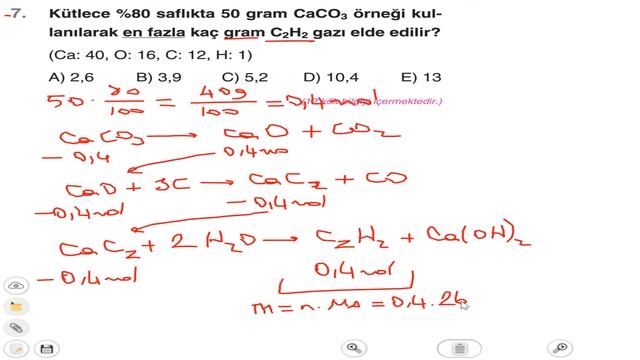 7. Kütlece %80 saflıkta 50 gram CaCO₃ örneği kul-
lanılarak en fazla kaç gram C₂H₂ gazı elde edilir?
(Ca: 40, O: 16, C: 12, H: 1)
A) 2,6 B) 3,9 C) 5,2 D) 10,4 E) 13
50 · 80/100 = 40g/100 = 0,4 mol
içermektedir.)
CaCO₃ → CaO + CO₂
-0,4 0,4 mo
CaO + 3C → CaC₂ + CO
-0,4 mol -0,4 mol
CaC₂ + 2H₂O → C₂H₂ + Ca(OH)₂
-0,4 mol 0,4 mol
m = n · MA = 0,4 · 26